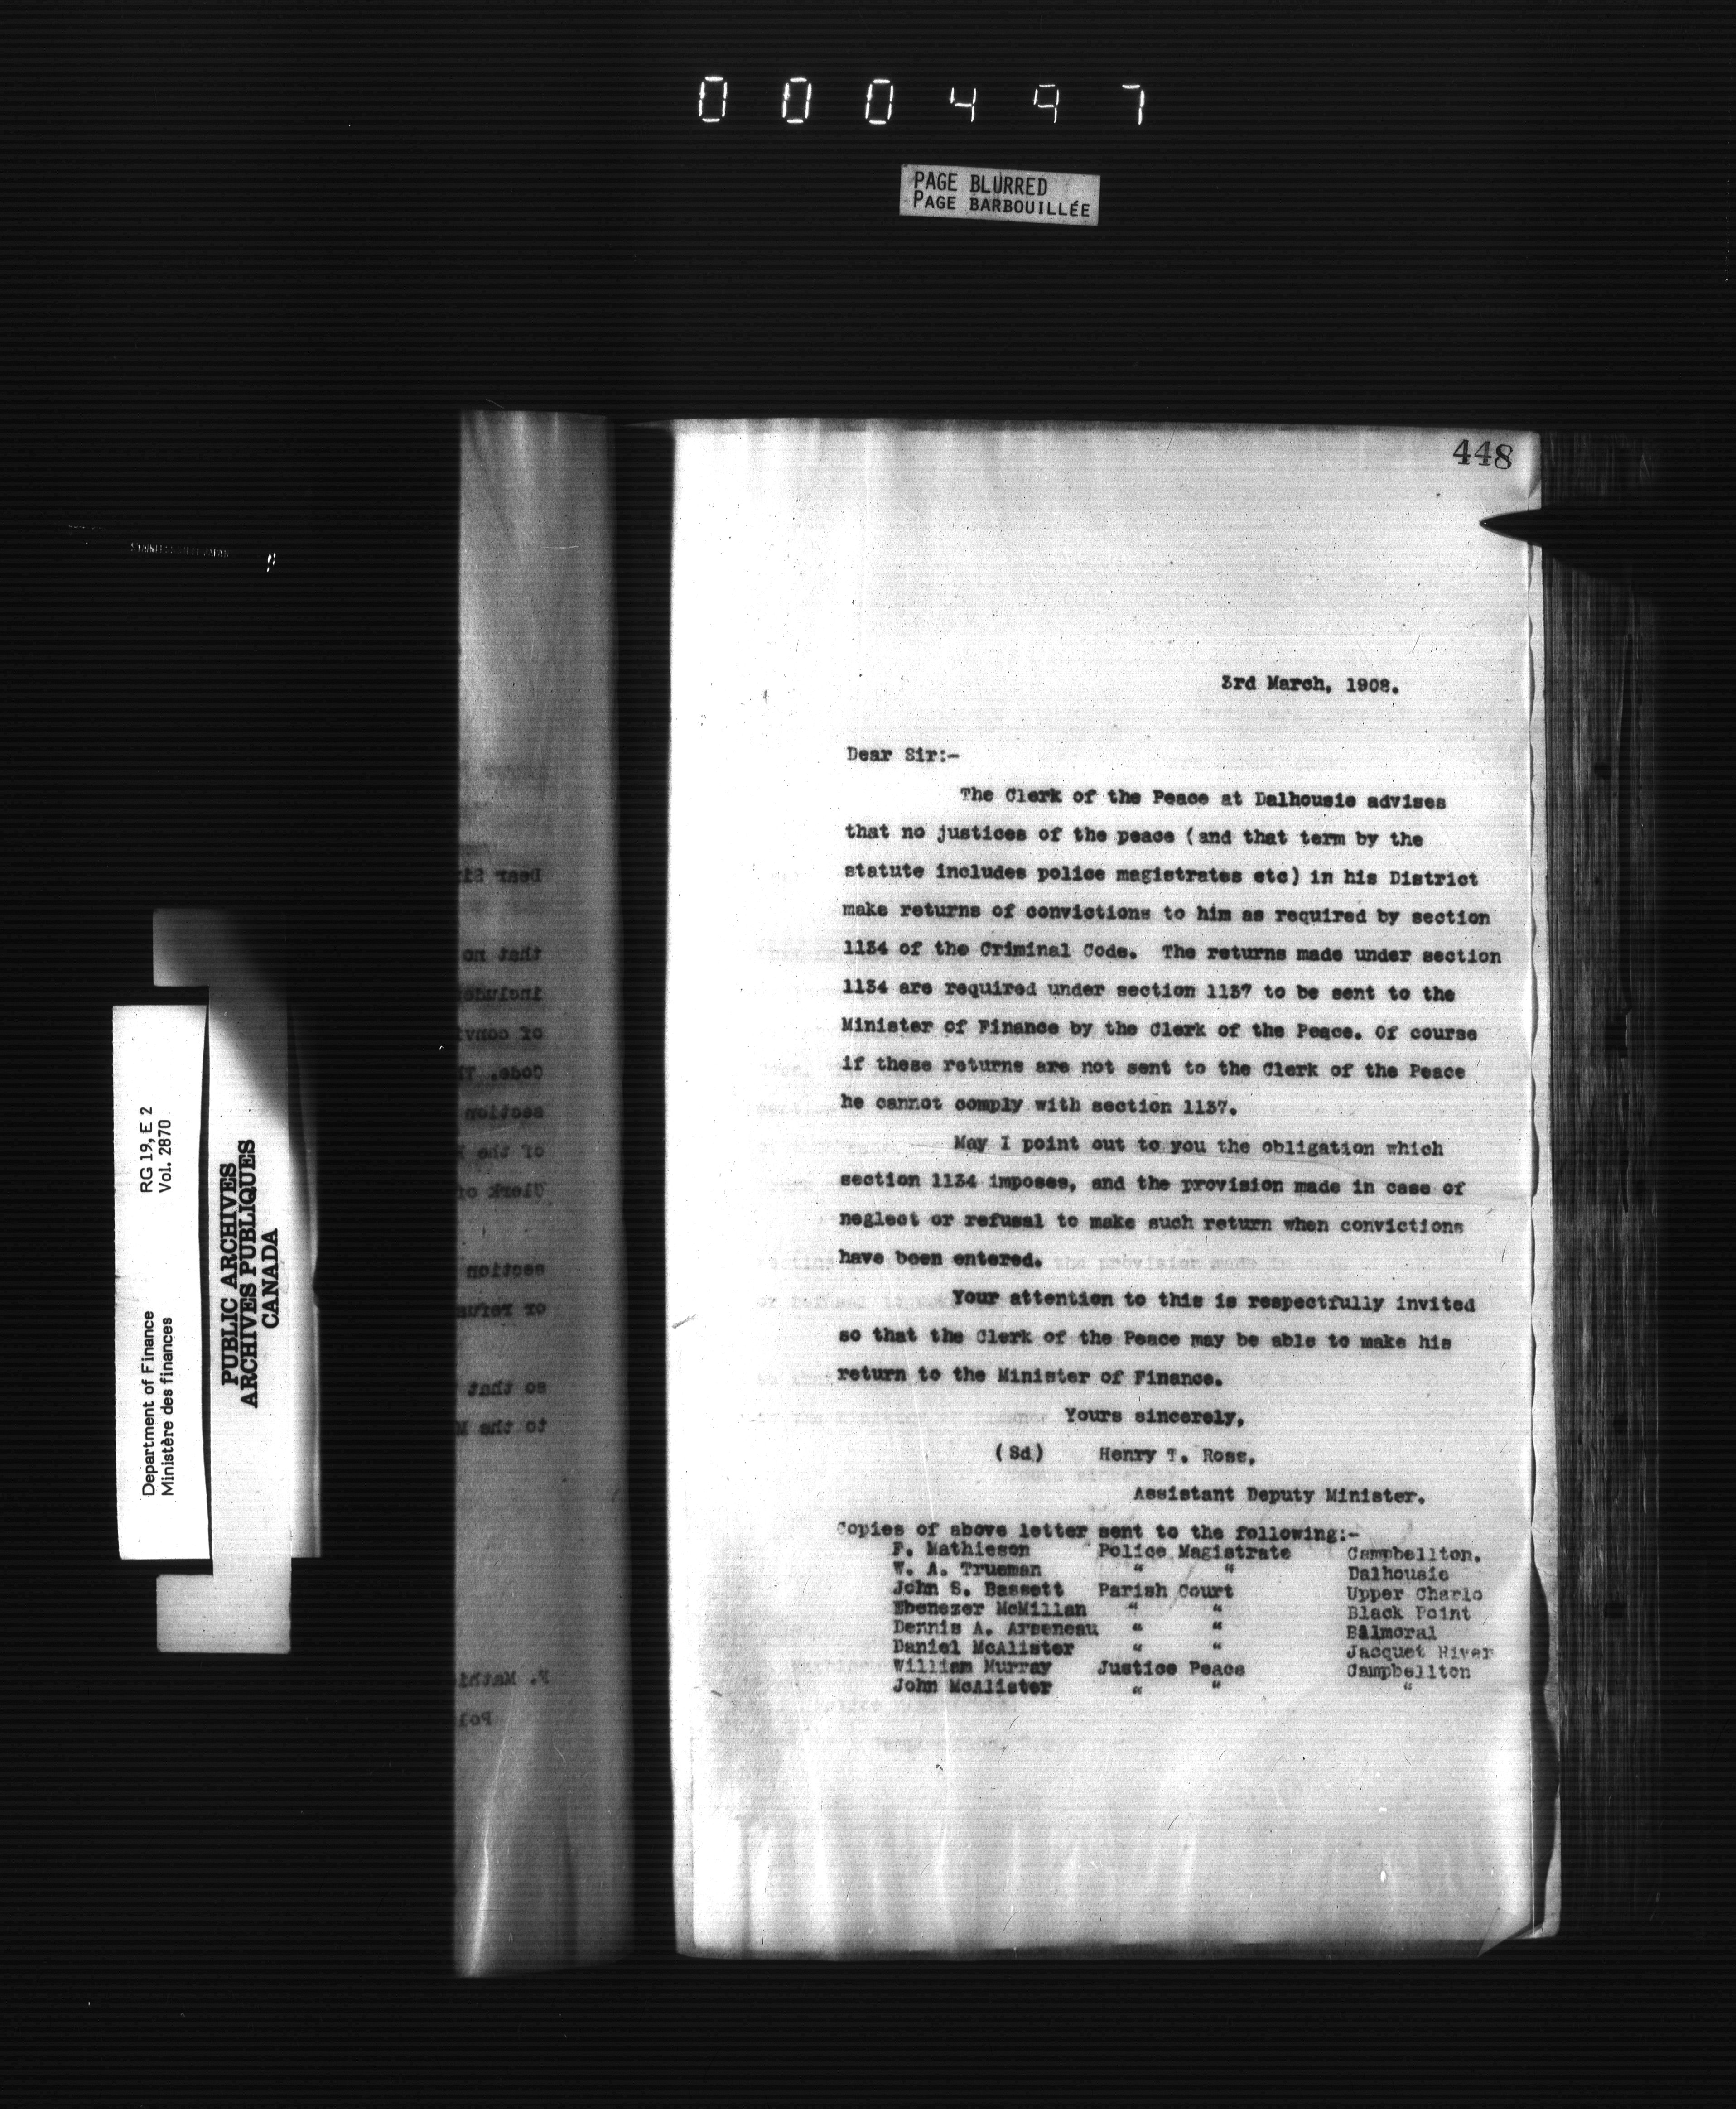 000497
PAGE BLURRED
PAGE BARBOUILLÉE
448
3rd March, 1908.
Dear Sir:-
The Clerk of the Peace at Dalhousie advises
that no justices of the peace (and that term by the
statute includes police magistrates etc) in his District
make returns of convictions to him as required by section
1134 of the Criminal Code. The returns made under section
1134 are required under section 1137 to be sent to the
Minister of Finance by the Clerk of the Peace. Of course
if these returns are not sent to the Clerk of the Peace
he cannot comply with section 1137.
May I point out to you the obligation which
section 1134 imposes, and the provision made in case of
neglect or refusal to make such return when convictions
have been entered.
Your attention to this is respectfully invited
so that the Clerk of the Peace may be able to make his
return to the Minister of Finance.
Yours sincerely,
(Sd) Henry T. Ross.
Assistant Deputy Minister.
Copies of above letter sent to the following:-
F. Mathieson Police Magistrate Campbellton.
W. A. Trueman " " Dalhousie
John S. Bassett Parish Court Upper Charlo
Ebenezer McMillan " " Black Point
Dennis A. Arseneau " " Balmoral
Daniel McAlister " " Jacquet River
William Murray Justice Peace Campbellton
John McAlister " " "
Department of Finance RG 19, E 2
Ministère des finances Vol. 2870
PUBLIC ARCHIVES
ARCHIVES PUBLIQUES
CANADA